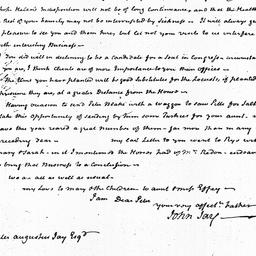 hope Helen's Indisposition will not be of long continuance and that the Health
& Rest of your family may not be interrupted by Sickness. It will always give
pleasure to see you and them here, but let not your visits to us interfere
with interesting Business.
You did well in declining to be a Candidate for a Seat in Congress.
you are, I think Clients are of more Importance to you than offices
The Elms you have planted will be good Substitutes for the Locusts, if planted
they are, at a greater Distance from the House
Having occasion to send Peter with a waggon to
take this opportunity of sending by him some Turkies for your aunt.
have this year reared a great number of them - far more than in any
preceding year. My last Letter to you went to Rye with
Mary & Sarah. in it I mentioned the Horses had of Mr.
to bring that Business to a Conclusion
we are all as well as usual
my Love to Mary & the Children & aunt &
I am Dear Peter
your very affect. Father
John Jay
Peter Augustus Jay Esqr